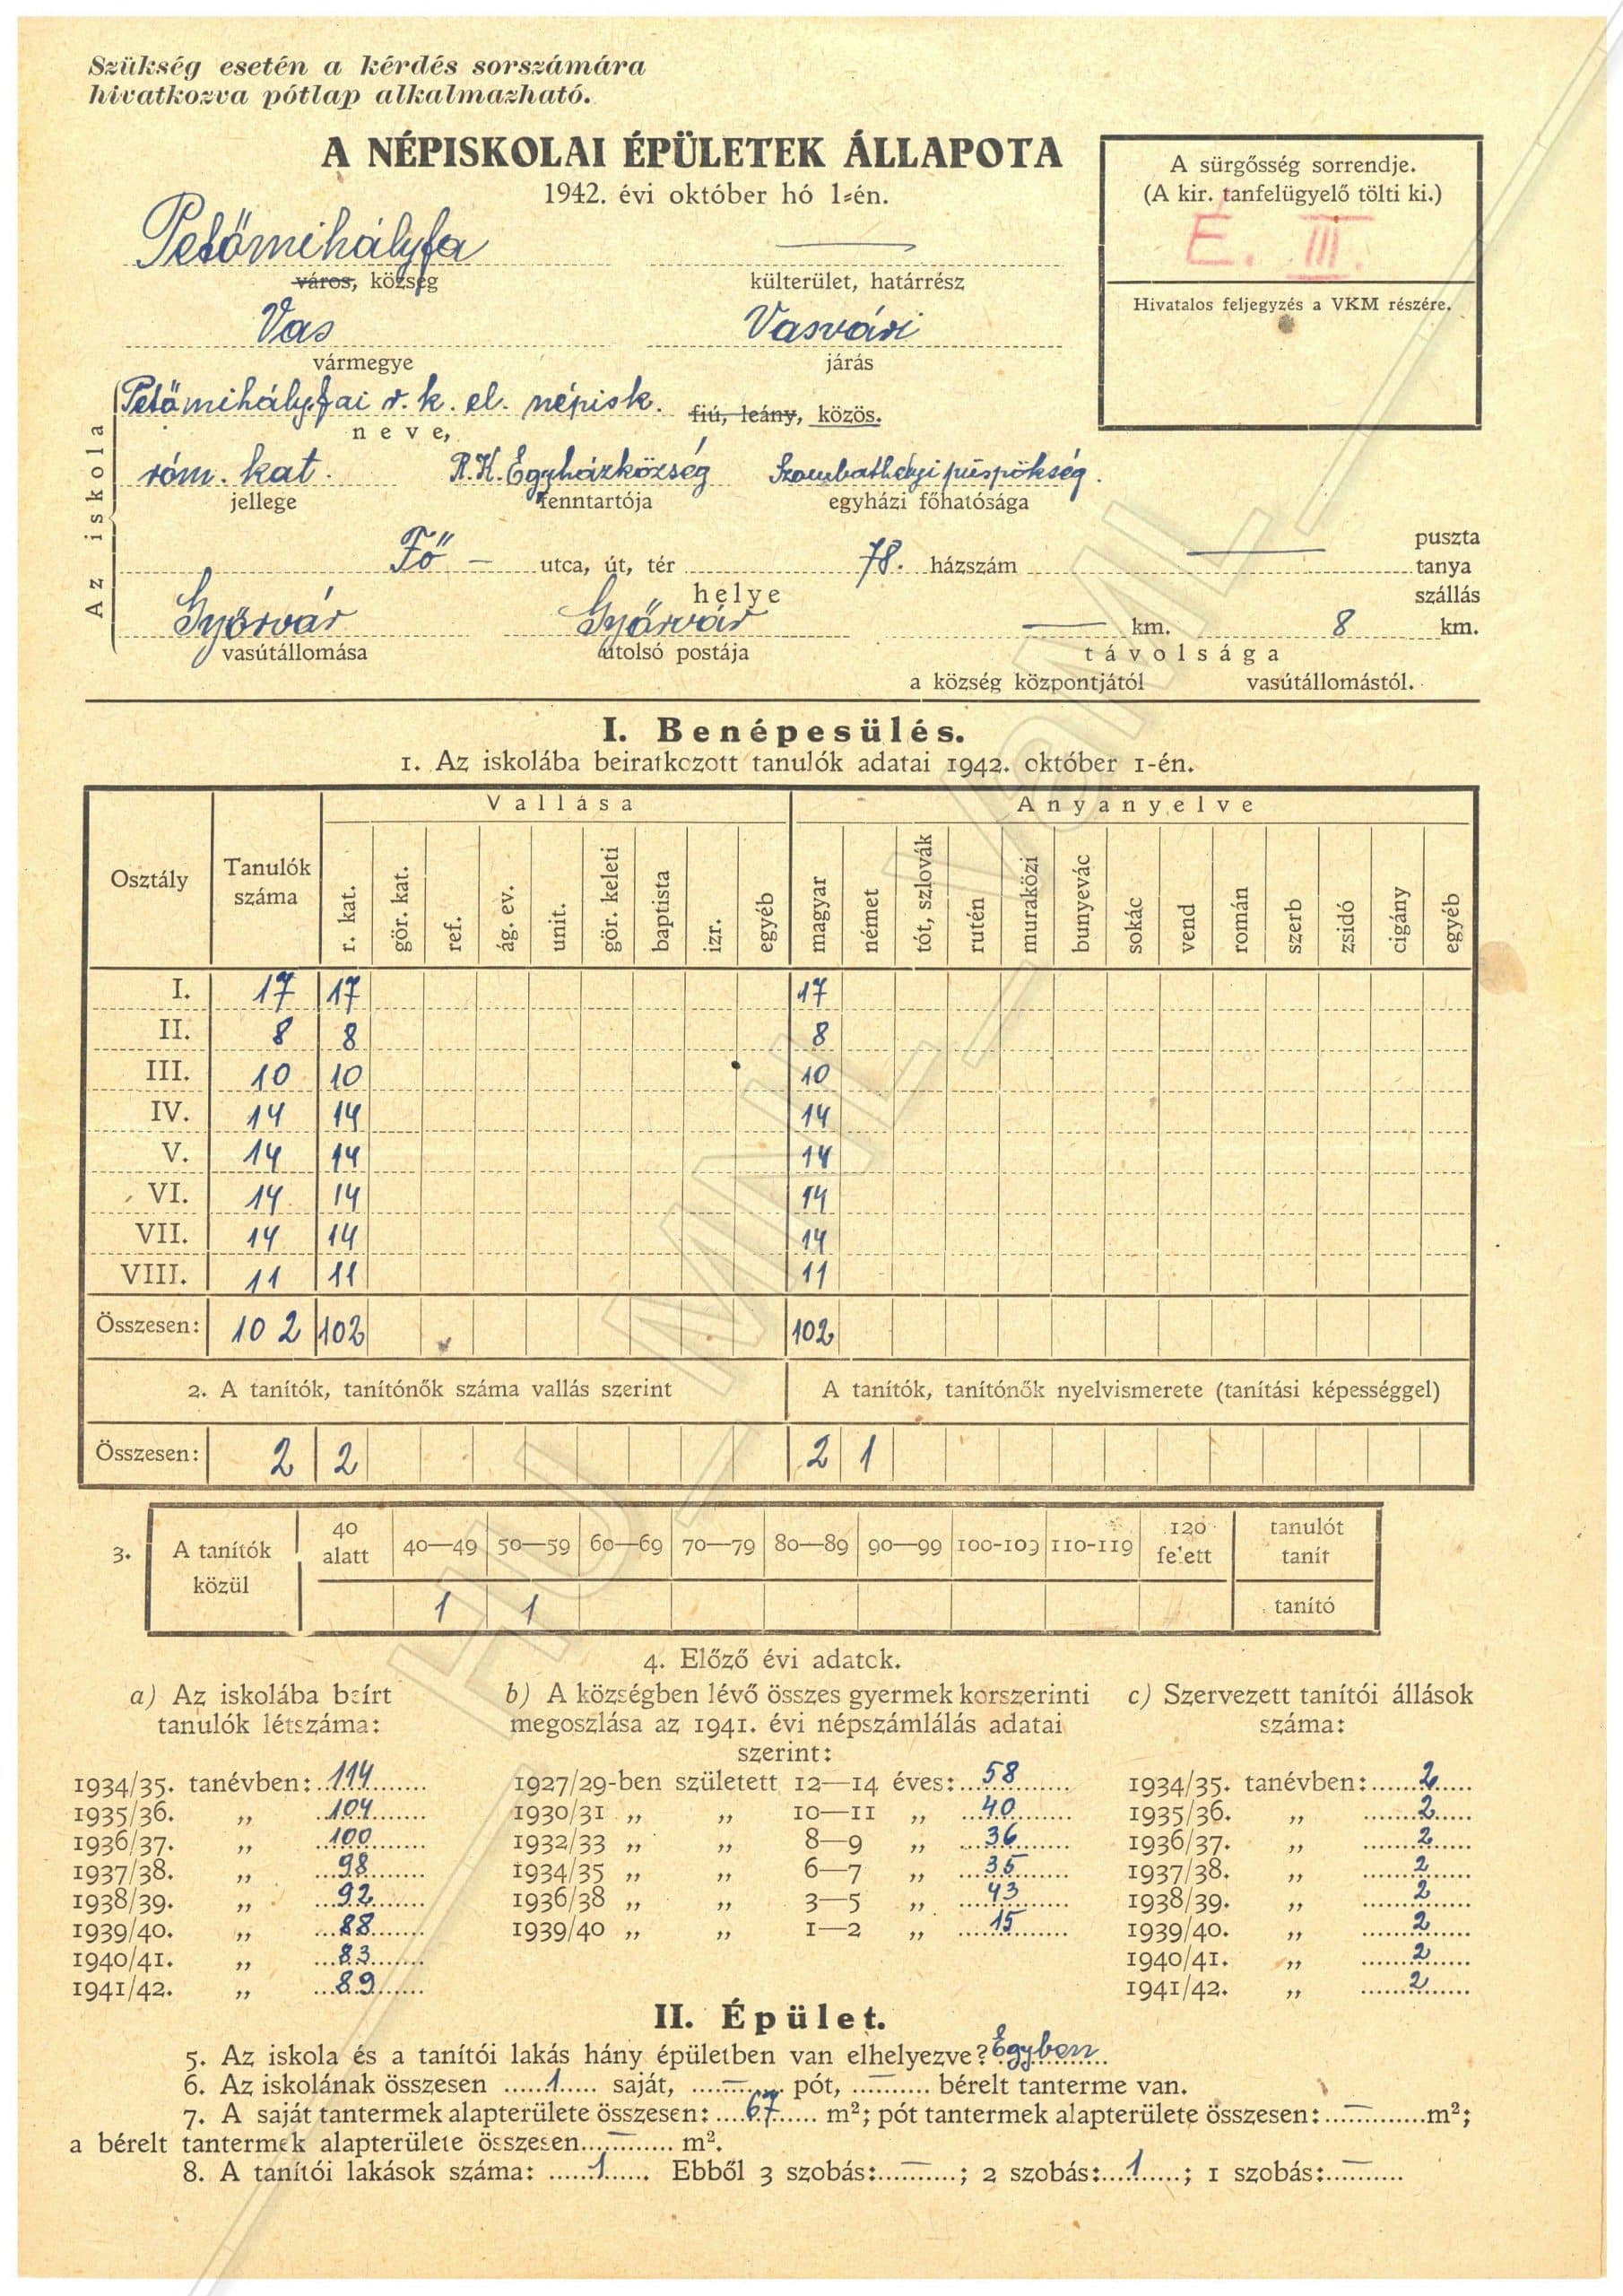 Szükség esetén a kérdés sorszámára
hivatkozva pótlap alkalmazható.
A NÉPISKOLAI ÉPÜLETEK ÁLLAPOTA
1942. évi október hó 1-én.
A sürgősség sorrendje.
(A kir. tanfelügyelő tölti ki.)
É. III.
Hivatalos feljegyzés a VKM részére.
Petőmihályfa —
város, község külterület, határrész
Vas Vasvári
vármegye járás
Az iskola
Petőmihályfai r. k. el. népisk. fiú, leány, közös.
neve,
róm. kat. R. K. Egyházközség Szombathelyi püspökség.
jellege fenntartója egyházi főhatósága
puszta
Fő — utca, út, tér 78. házszám — tanya
helye szállás
Győrvár Győrvár — km. 8 km.
vasútállomása utolsó postája távolsága
a község központjától vasútállomástól.
I. Benépesülés.
1. Az iskolába beiratkozott tanulók adatai 1942. október 1-én.
Vallása Anyanyelve
Osztály Tanulók száma r. kat. gör. kat. ref. ág. ev. unit. gör. keleti baptista izr. egyéb magyar német tót, szlovák rutén muraközi bunyevác sokác vend román szerb zsidó cigány egyéb
I. 17 17 17
II. 8 8 8
III. 10 10 10
IV. 14 14 14
V. 14 14 14
VI. 14 14 14
VII. 14 14 14
VIII. 11 11 11
Összesen: 102 102 102
2. A tanítók, tanítónők száma vallás szerint A tanítók, tanítónők nyelvismerete (tanítási képességgel)
Összesen: 2 2 2 1
3. A tanítók közül 40 alatt 40—49 50—59 60—69 70—79 80—89 90—99 100-109 110-119 120 felett tanulót tanít
1 1 tanító
4. Előző évi adatok.
a) Az iskolába beírt b) A községben lévő összes gyermek korszerinti c) Szervezett tanítói állások
tanulók létszáma: megoszlása az 1941. évi népszámlálás adatai száma:
szerint:
1934/35. tanévben: 114 1927/29-ben született 12—14 éves: 58 1934/35. tanévben: 2
1935/36. „ 104 1930/31 „ „ 10—11 „ 40 1935/36. „ 2
1936/37. „ 100 1932/33 „ „ 8—9 „ 36 1936/37. „ 2
1937/38. „ 98 1934/35 „ „ 6—7 „ 35 1937/38. „ 2
1938/39. „ 92 1936/38 „ „ 3—5 „ 43 1938/39. „ 2
1939/40. „ 88 1939/40 „ „ 1—2 „ 15 1939/40. „ 2
1940/41. „ 83 1940/41. „ 2
1941/42. „ 89 1941/42. „ 2
II. Épület.
5. Az iskola és a tanítói lakás hány épületben van elhelyezve? Egyben
6. Az iskolának összesen 1 saját, — pót, — bérelt tanterme van.
7. A saját tantermek alapterülete összesen: 67 m²; pót tantermek alapterülete összesen: — m²;
a bérelt tantermek alapterülete összesen — m².
8. A tanítói lakások száma: 1. Ebből 3 szobás: —; 2 szobás: 1; 1 szobás: —